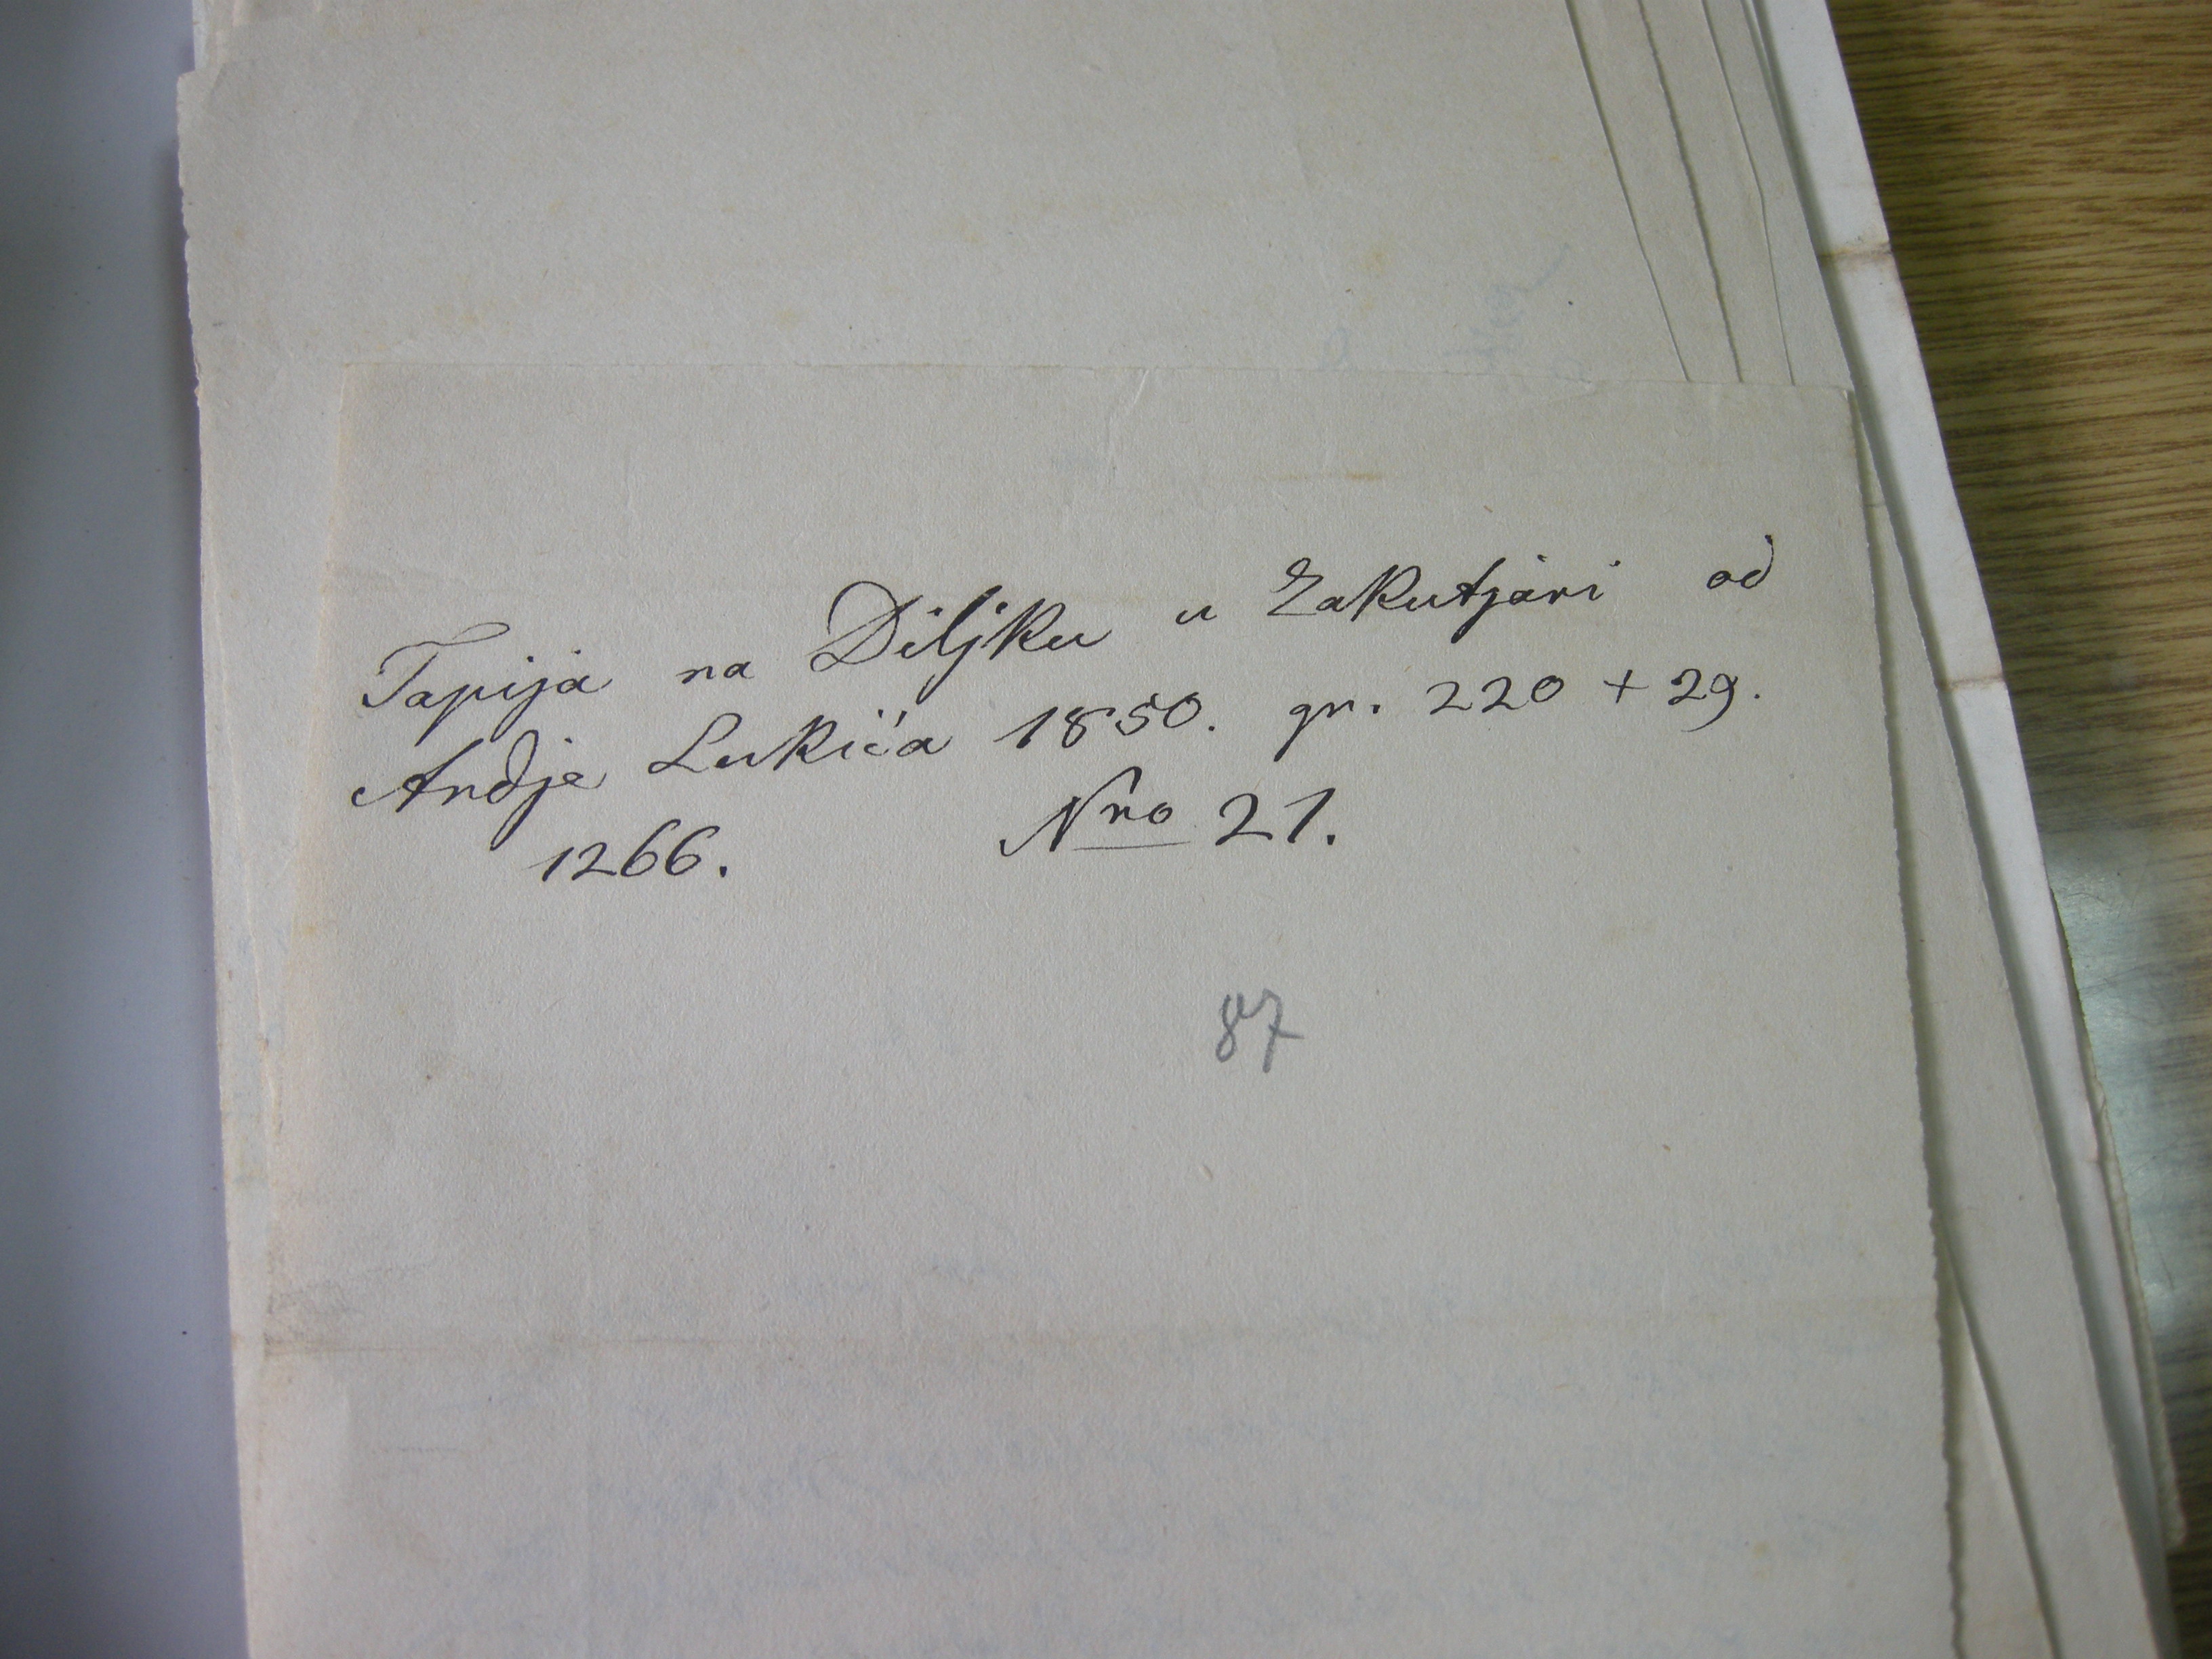 Tapija na Diljku u Zakutjári od
Andje Lukića 1850. gr. 220 + 29.
1266. Nro 21.
87